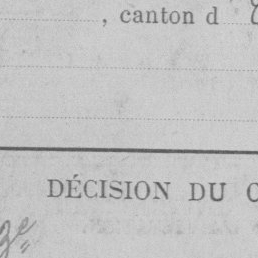 , canton d
DÉCISION DU C